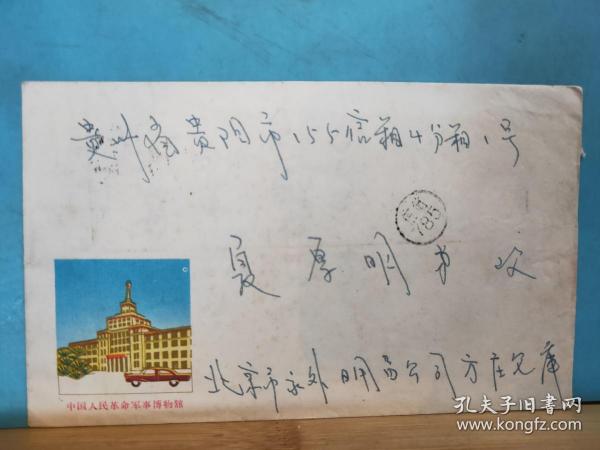 贵州省贵阳市155信箱4分箱1号
夏厚明 收
北京市永外 公司方庄仓库
中国人民革命军事博物館
孔夫子旧书网
www.kongfz.com